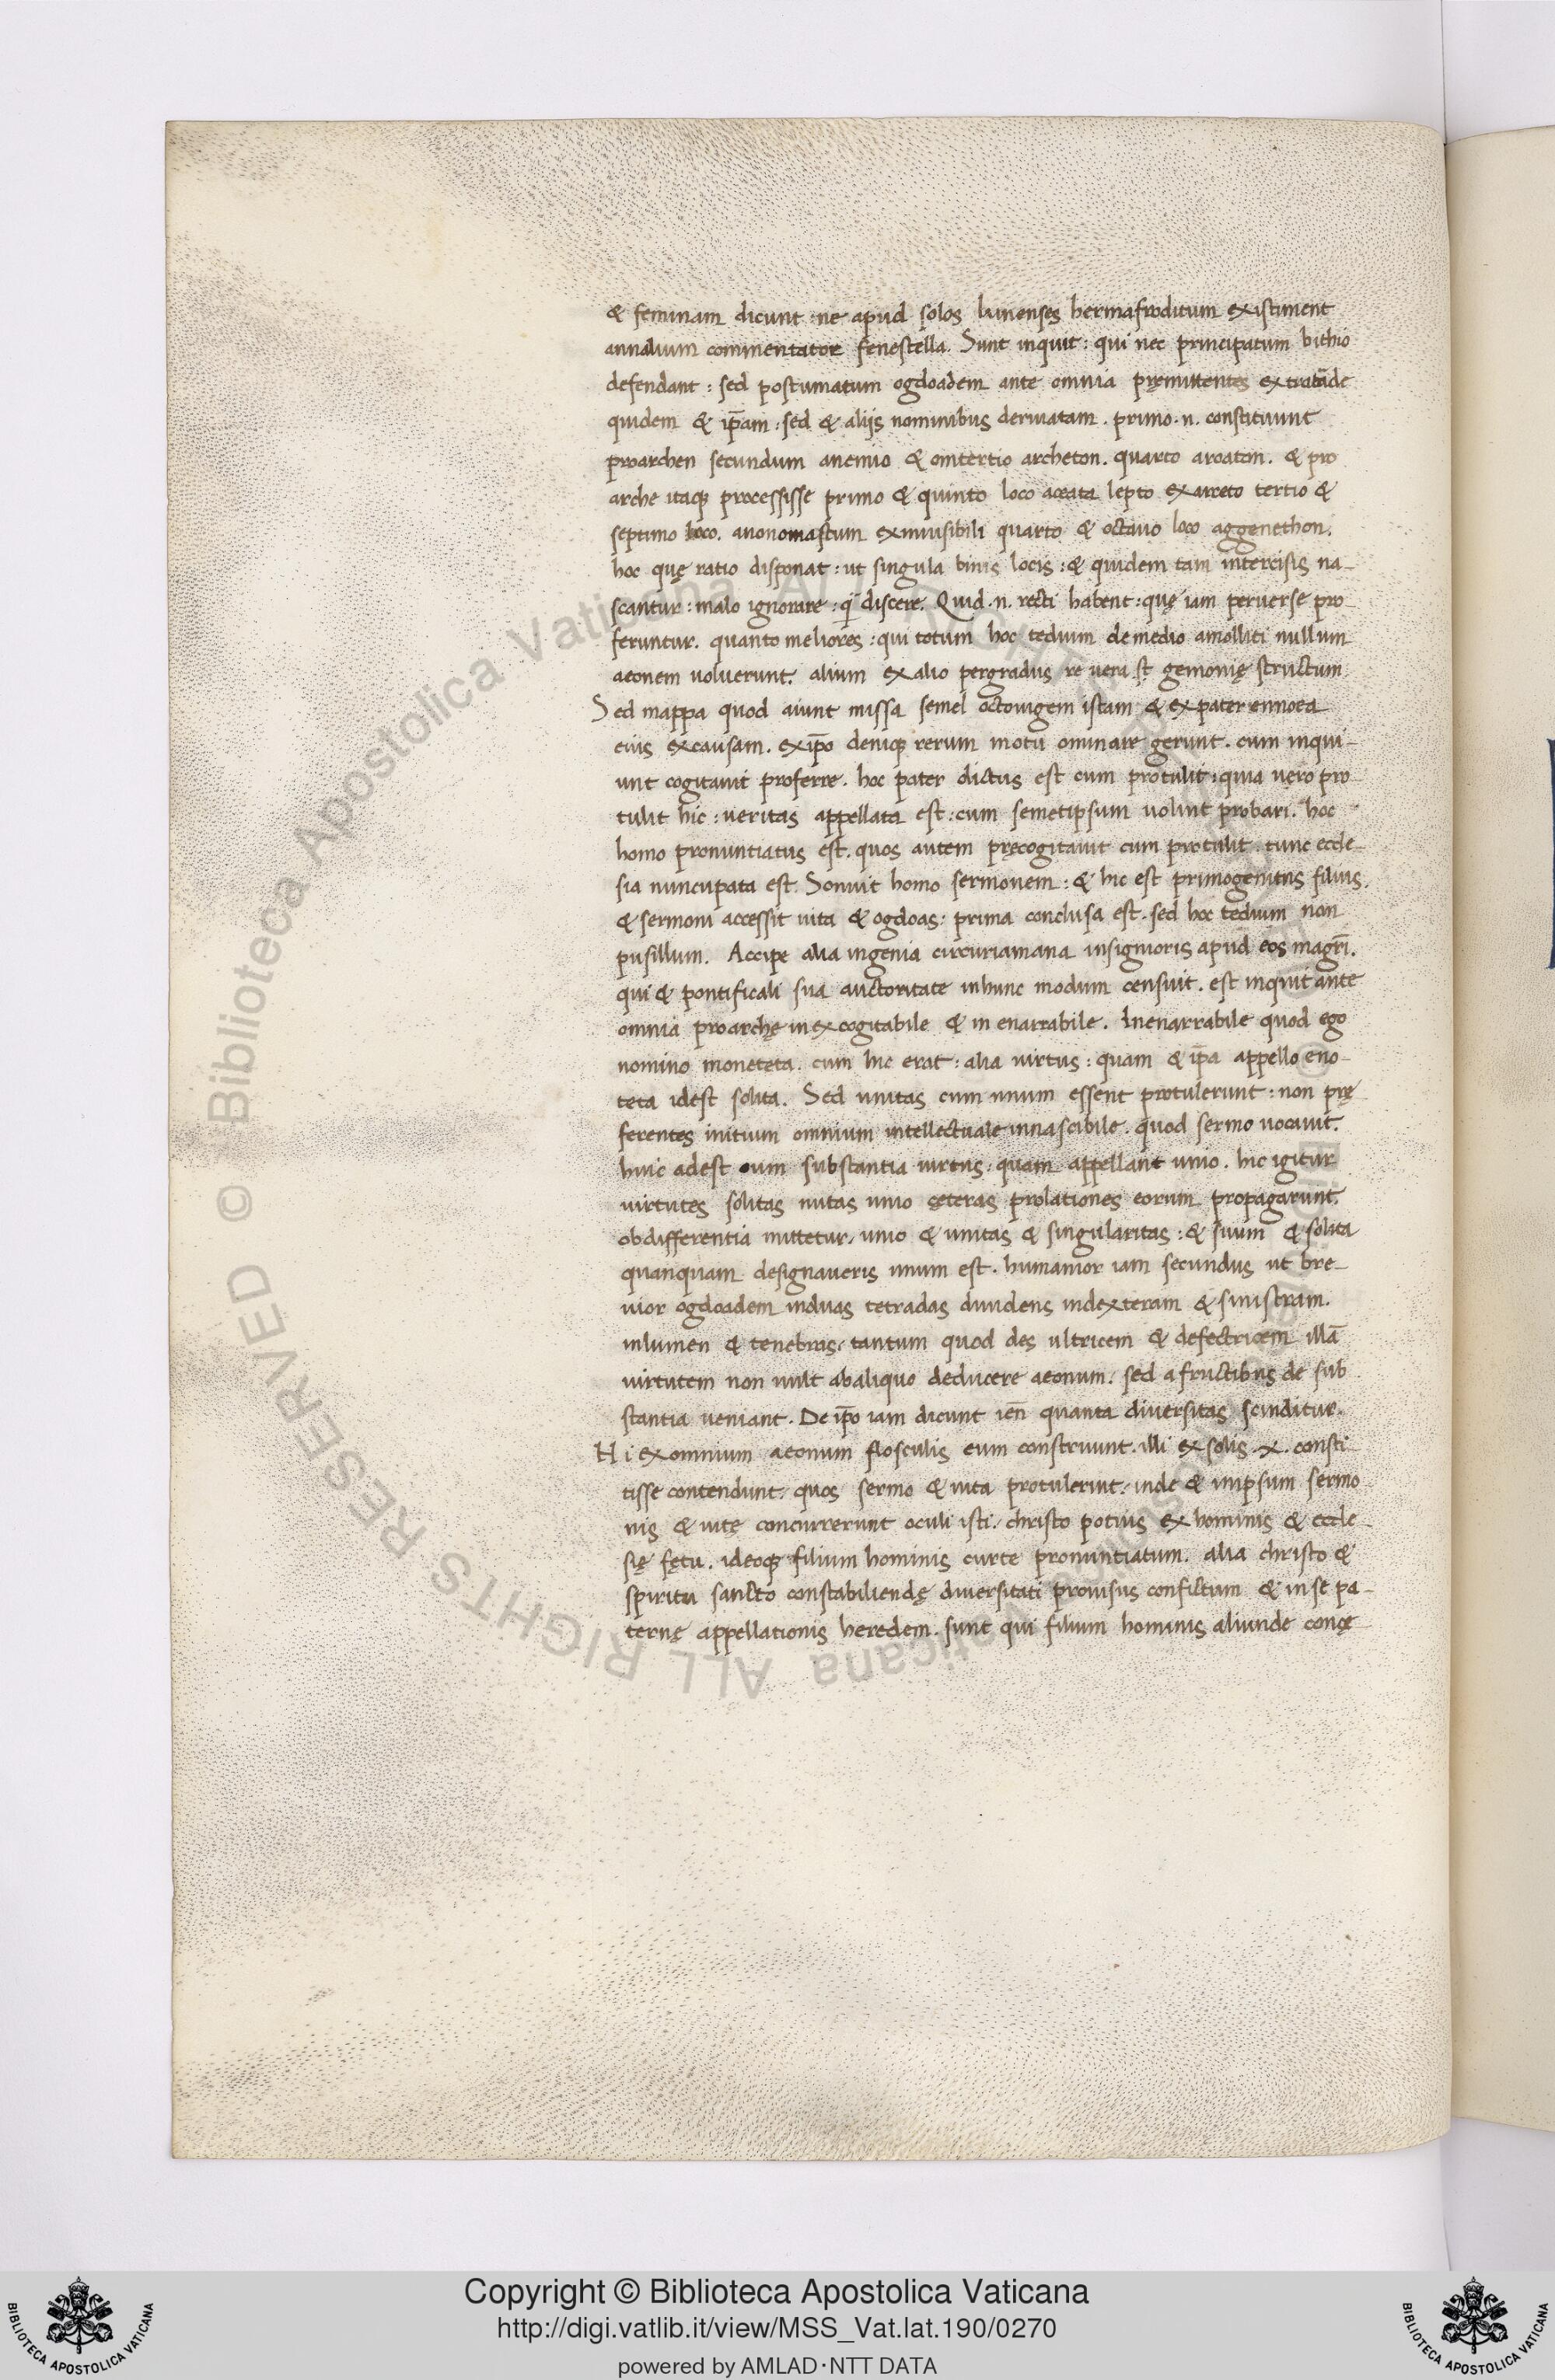 & feminam dicunt : ne apud solos lunenses hermafroditum existiment
annalium commentator fenestella. Sunt inquit : qui nec principatum bithio
defendant : sed postumatum ogdoadem ante omnia pręmittentes ex tratāde
quidem & ip̄am : sed & alijs nominibus deriuatam . primo .n. constituunt
proarchen secundum anenuo & ointertio archeton. quarto aroaton. & pro
arche itaqꝫ processisse primo & quinto loco aceata lepto ex arceto tertio &
septimo loco. anonomastum exinuisibili quarto & octauo loco aggenethon.
hoc quę ratio disponat : ut singula binis locis : & quidem tam intercisis na-
scantur : malo ignorare : q̃ discere. Quid .n. recti habent : quę iam peruerse pro
feruntur. quanto meliores : qui totum hoc tedium demedio amolliti nullum
aeonem uoluerunt. alium ex alio pergradus re uera st̄ gemonię structum
Sed mappa quod aiunt missa semel octoiugem istam & expater ennoea
eius excausam. exip̄o deniqꝫ rerum motu ominare gerunt. cum inqui-
unt cogitauit proferre. hoc pater dictus est cum protulit : quia uero pro
tulit hic : ueritas appellata est : cum semetipsum uolint probari. hoc
homo pronuntiatus est. quos autem pręcogitauit cum protulit. tunc eccle-
sia nuncupata est. Sonuit homo sermonem : & hic est primogenitus filius.
& sermoni accessit uita & ogdoas : prima conclusa est. sed hoc tedium non
pusillum. Accipe alia ingenia circuriamana insignioris apud eos magrī.
qui & pontificali sua auctoritate inhunc modum censuit. est inquit ante
omnia proarchę inexcogitabile & in enarrabile. Inenarrabile quod ego
nomino moneteta. cum hic erat : alia uirtus : quam & ip̄a appello eno-
teta idest solita. Sed unitas cum unum essent protulerunt : non prę
ferentes initium omnium intellectuale innascibile. quod sermo uocauit.
huic adest cum substantia uirtus : quam appellant unio. hic igitur
uirtutes solitas nutas unio cęteras prolationes eorum propagarunt.
obdifferentia mittetur. unio & unitas & singularitas : & suum & solita
quanquam designaueris unum est. humanior iam secundus ut bre-
uior ogdoadem induas tetradas diuidens indexteram & sinistram.
inlumen & tenebras. tantum quod des ultricem & defectricem illā
uirtutem non uult abaliquo deducere aeonum. sed a fructibus de sub
stantia ueniant. De ip̄o iam dicunt ien̄ quanta diuersitas scinditur.
Hi exomnium aeonum flosculis eum construunt. illi ex solis .x. consti
tisse contendunt. quos sermo & uita protulerint. inde & inipsum sermo
nis & uitę concurrerunt oculi isti. christo potius ex hominis & eccle
się fętu. ideoqꝫ filium hominis curte pronuntiatum. alia christo &
spiritu sancto constabiliendę diuersitati prouisus confictum & inse pa-
ternę appellationis heredem. sunt qui filium hominis aliunde concę
© Biblioteca Apostolica Vaticana ALL RIGHTS RESERVED
Copyright © Biblioteca Apostolica Vaticana
http://digi.vatlib.it/view/MSS_Vat.lat.190/0270
powered by AMLAD·NTT DATA
BIBLIOTECA APOSTOLICA VATICANA
BIBLIOTECA APOSTOLICA VATICANA